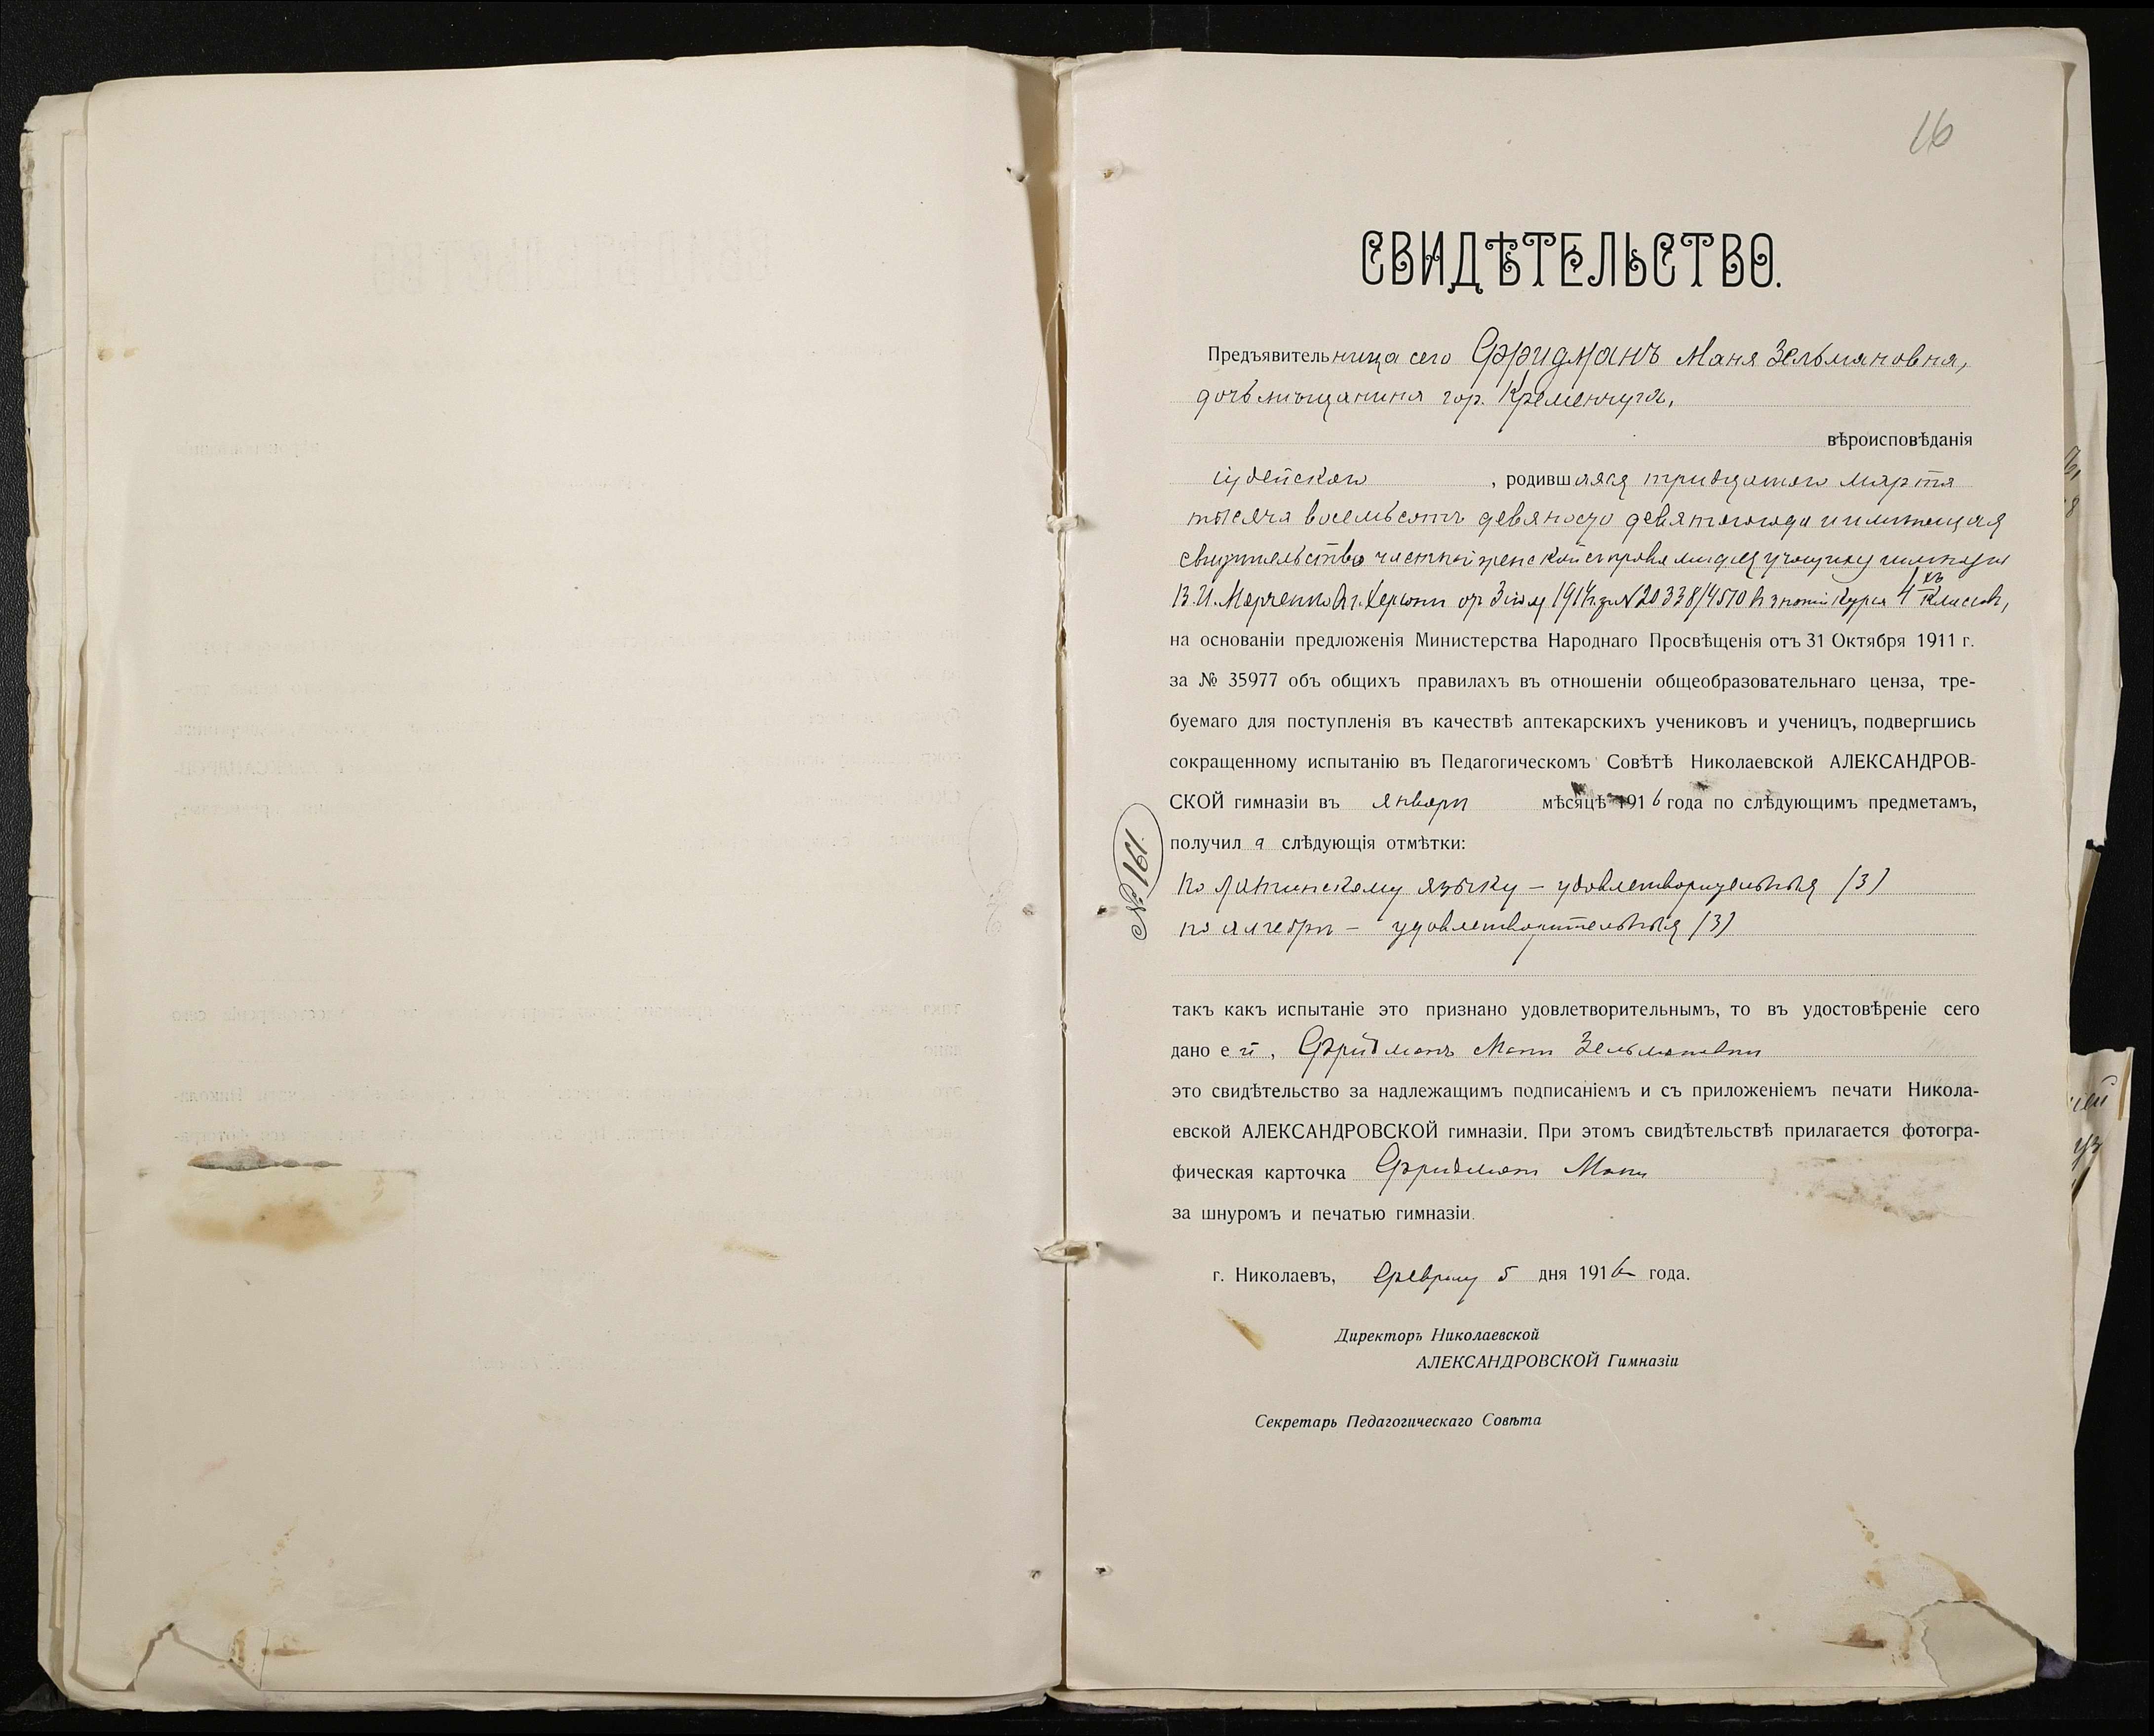 16
СВИДѢТЕЛЬСТВО.
Предъявительница сего Фридманъ Маня Зельмановна,
дочь мѣщанина гор. Кременчуга,
вѣроисповѣданія
іудейскаго , родившаяся тридцатаго марта
тысяча восемьсотъ девяносто девятаго года и имѣющая
свидѣтельство частной женской съ правами для учащихъ гимназіи
В. И. Марченко въ г. Херсонѣ отъ 3 іюля 1914 г. за № 20338/4510 въ знаніи курса 4 хъ классовъ,
на основаніи предложенія Министерства Народнаго Просвѣщенія отъ 31 Октября 1911 г.
за № 35977 объ общихъ правилахъ въ отношеніи общеобразовательнаго ценза, тре-
буемаго для поступленія въ качествѣ аптекарскихъ учениковъ и ученицъ, подвергшись
сокращенному испытанію въ Педагогическомъ Совѣтѣ Николаевской АЛЕКСАНДРОВ-
СКОЙ гимназіи въ январѣ мѣсяцѣ 1916 года по слѣдующимъ предметамъ,
получила слѣдующія отмѣтки:
№ 161.
по латинскому языку – удовлетворительныя (3)
по алгебрѣ – удовлетворительныя (3)
такъ какъ испытаніе это признано удовлетворительнымъ, то въ удостовѣреніе сего
дано ей, Фридманъ Манѣ Зельмановнѣ
это свидѣтельство за надлежащимъ подписаніемъ и съ приложеніемъ печати Никола-
евской АЛЕКСАНДРОВСКОЙ гимназіи. При этомъ свидѣтельствѣ прилагается фотогра-
фическая карточка Фридманъ Мани
за шнуромъ и печатью гимназіи.
г. Николаевъ, Февраля 5 дня 1916 года.
Директоръ Николаевской
АЛЕКСАНДРОВСКОЙ Гимназіи
Секретарь Педагогическаго Совѣта